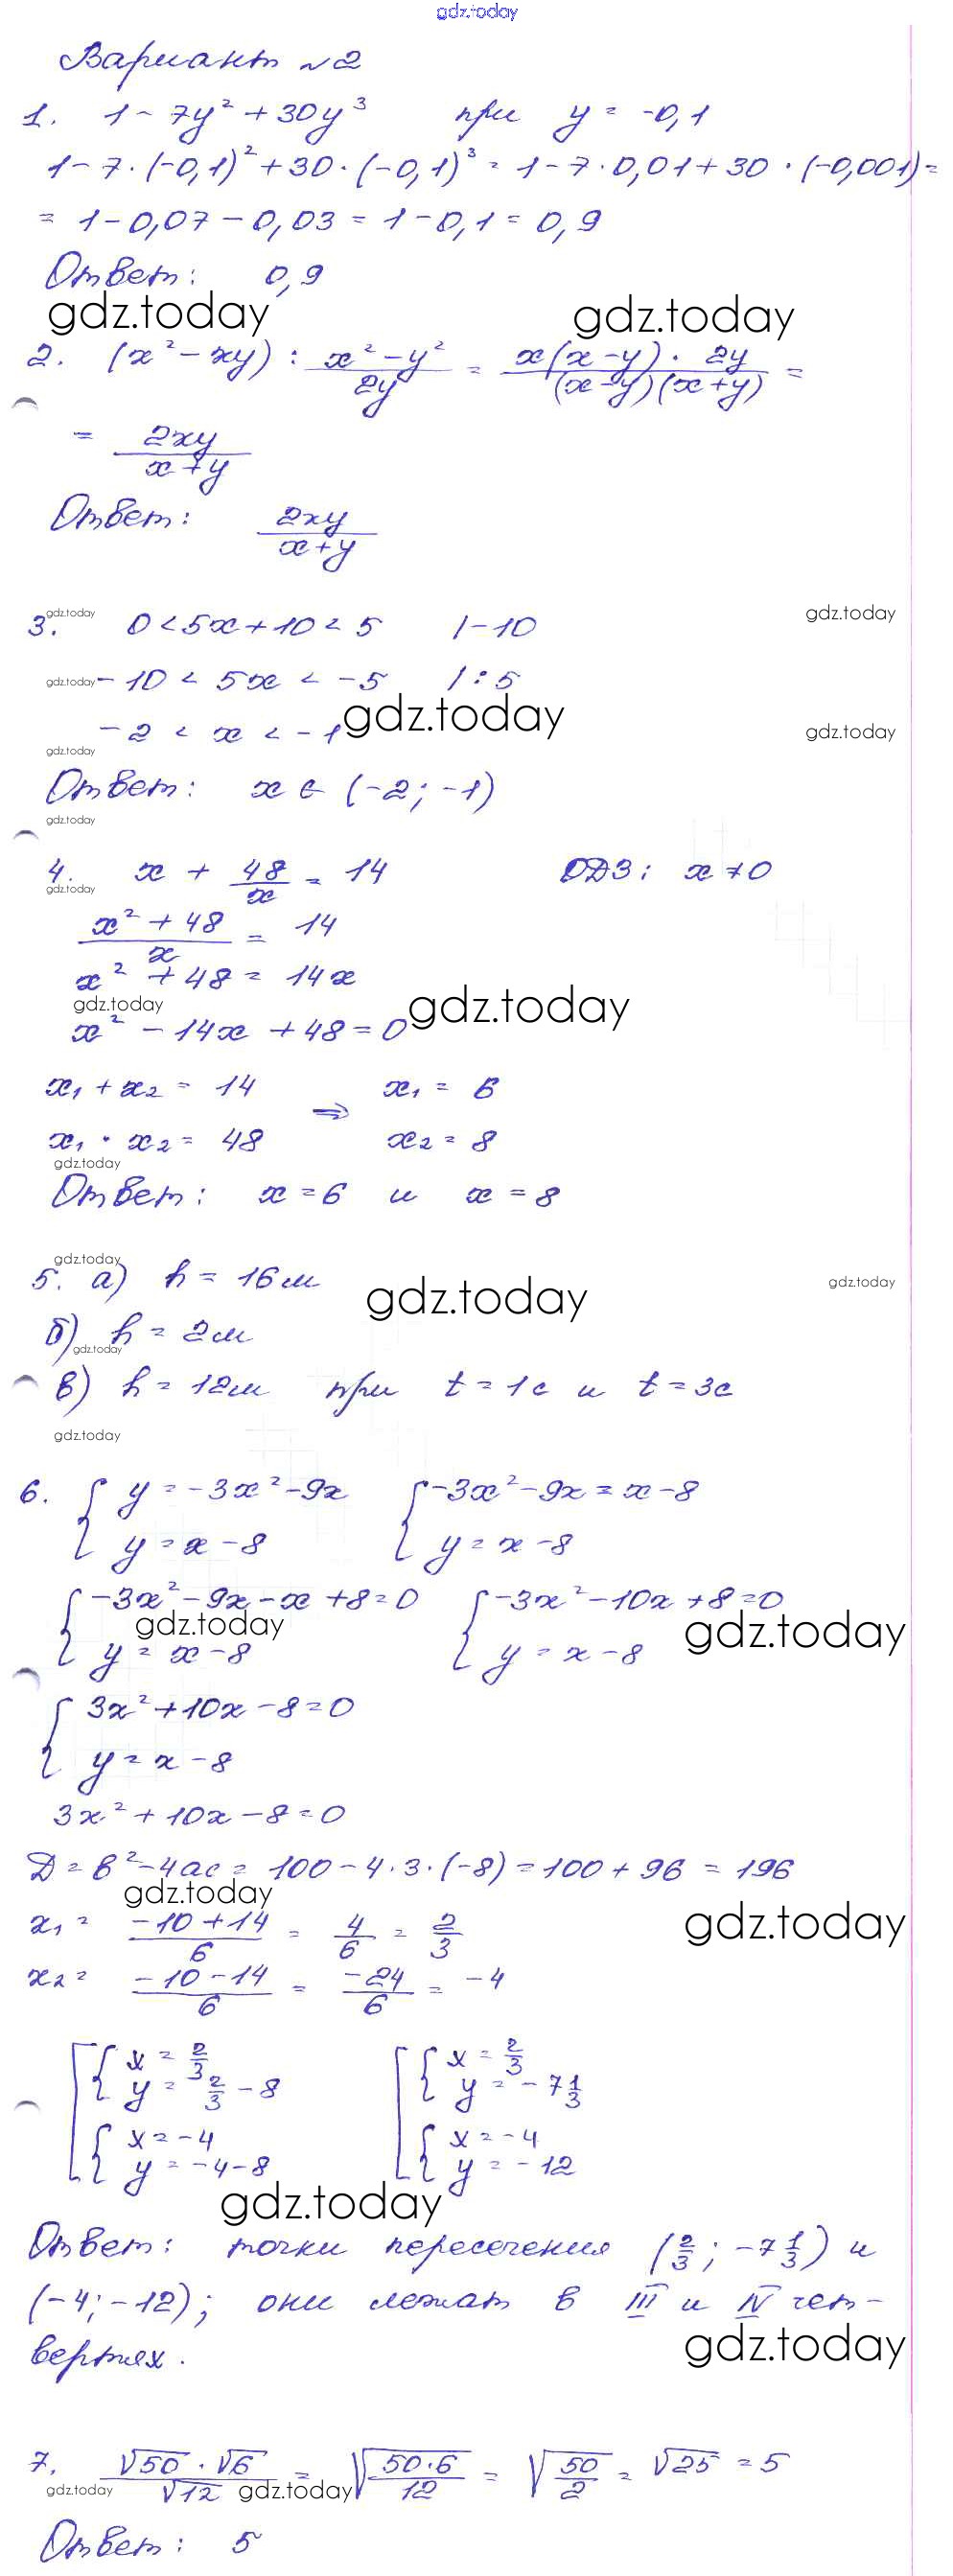 gdz.today
Вариант №2
1. 1 - 7y² + 30y³ при y = -0,1
1 - 7 · (-0,1)² + 30 · (-0,1)³ = 1 - 7 · 0,01 + 30 · (-0,001) =
= 1 - 0,07 - 0,03 = 1 - 0,1 = 0,9
Ответ: 0,9
gdz.today gdz.today
2. (x² - xy) : (x² - y²)/(2y) = (x(x - y) · 2y)/((x - y)(x + y)) =
= 2xy/(x + y)
Ответ: 2xy/(x + y)
gdz.today gdz.today
3. 0 < 5x + 10 < 5 | -10
gdz.today -10 < 5x < -5 | : 5
-2 < x < -1 gdz.today gdz.today
gdz.today
Ответ: x ∈ (-2; -1)
gdz.today
4. x + 48/x = 14 ОДЗ: x ≠ 0
gdz.today
(x² + 48)/x = 14
x² + 48 = 14x
gdz.today gdz.today
x² - 14x + 48 = 0
x₁ + x₂ = 14 ⇒ x₁ = 6
x₁ · x₂ = 48 x₂ = 8
gdz.today
Ответ: x = 6 и x = 8
gdz.today
5. а) h = 16м gdz.today gdz.today
б) h = 2м
gdz.today
в) h = 12м при t = 1с и t = 3с
gdz.today
6. { y = -3x² - 9x { -3x² - 9x = x - 8
y = x - 8 y = x - 8
{ -3x² - 9x - x + 8 = 0 { -3x² - 10x + 8 = 0
gdz.today gdz.today
y = x - 8 y = x - 8
{ 3x² + 10x - 8 = 0
y = x - 8
3x² + 10x - 8 = 0
Д = в² - 4ас = 100 - 4 · 3 · (-8) = 100 + 96 = 196
gdz.today gdz.today
x₁ = (-10 + 14)/6 = 4/6 = 2/3
x₂ = (-10 - 14)/6 = -24/6 = -4
[ { x = 2/3 [ { x = 2/3
y = 2/3 - 8 y = -7 1/3
{ x = -4 { x = -4
y = -4 - 8 y = -12
gdz.today
Ответ: точки пересечения (2/3; -7 1/3) и
(-4; -12); они лежат в III и IV чет-
вертях. gdz.today
7. (√50 · √6)/√12 = √(50·6/12) = √(50/2) = √25 = 5
gdz.today gdz.today
Ответ: 5